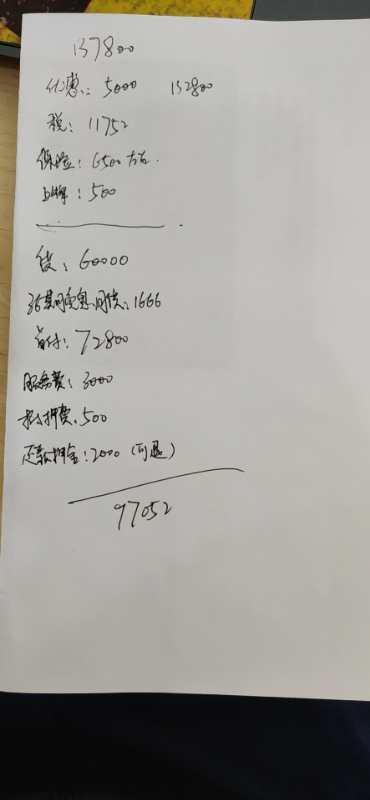 137800
优惠: 5000 132800
税: 11752
保险: 6500左右.
上牌: 500
贷: 60000
36期免息,月供: 1666
首付: 72800
服务费: 3000
抵押费: 500
还款押金: 2000 (可退)
97052